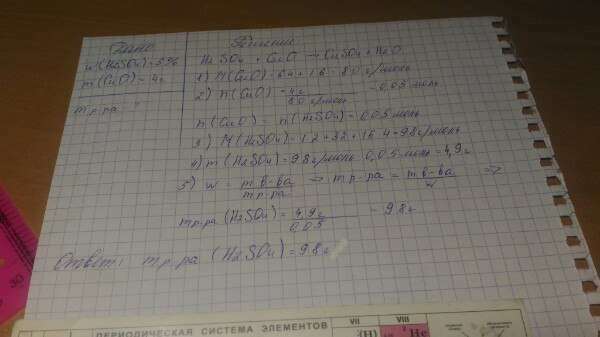 Дано
Решение
w(H2SO4)=5%
m(CuO)=4г
m р.ра
H2SO4 + CuO → CuSO4 + H2O
1) M(CuO)=64+16=80 г/моль
2) n(CuO) = 4г / 80 г/моль = 0,05 моль
n(CuO) = n(H2SO4) = 0,05 моль
3) M(H2SO4)=1·2+32+16·4=98г/моль
4) m(H2SO4)=98г/моль · 0,05 моль=4,9г
5) w = m в-ва / m р.ра → m р-ра = m в-ва / w ⇒
m р.ра (H2SO4) = 4,9г / 0,05 = 98г
Ответ: m р.ра (H2SO4)=98г
ПЕРИОДИЧЕСКАЯ СИСТЕМА ЭЛЕМЕНТОВ
VII VIII
(H) 2 He